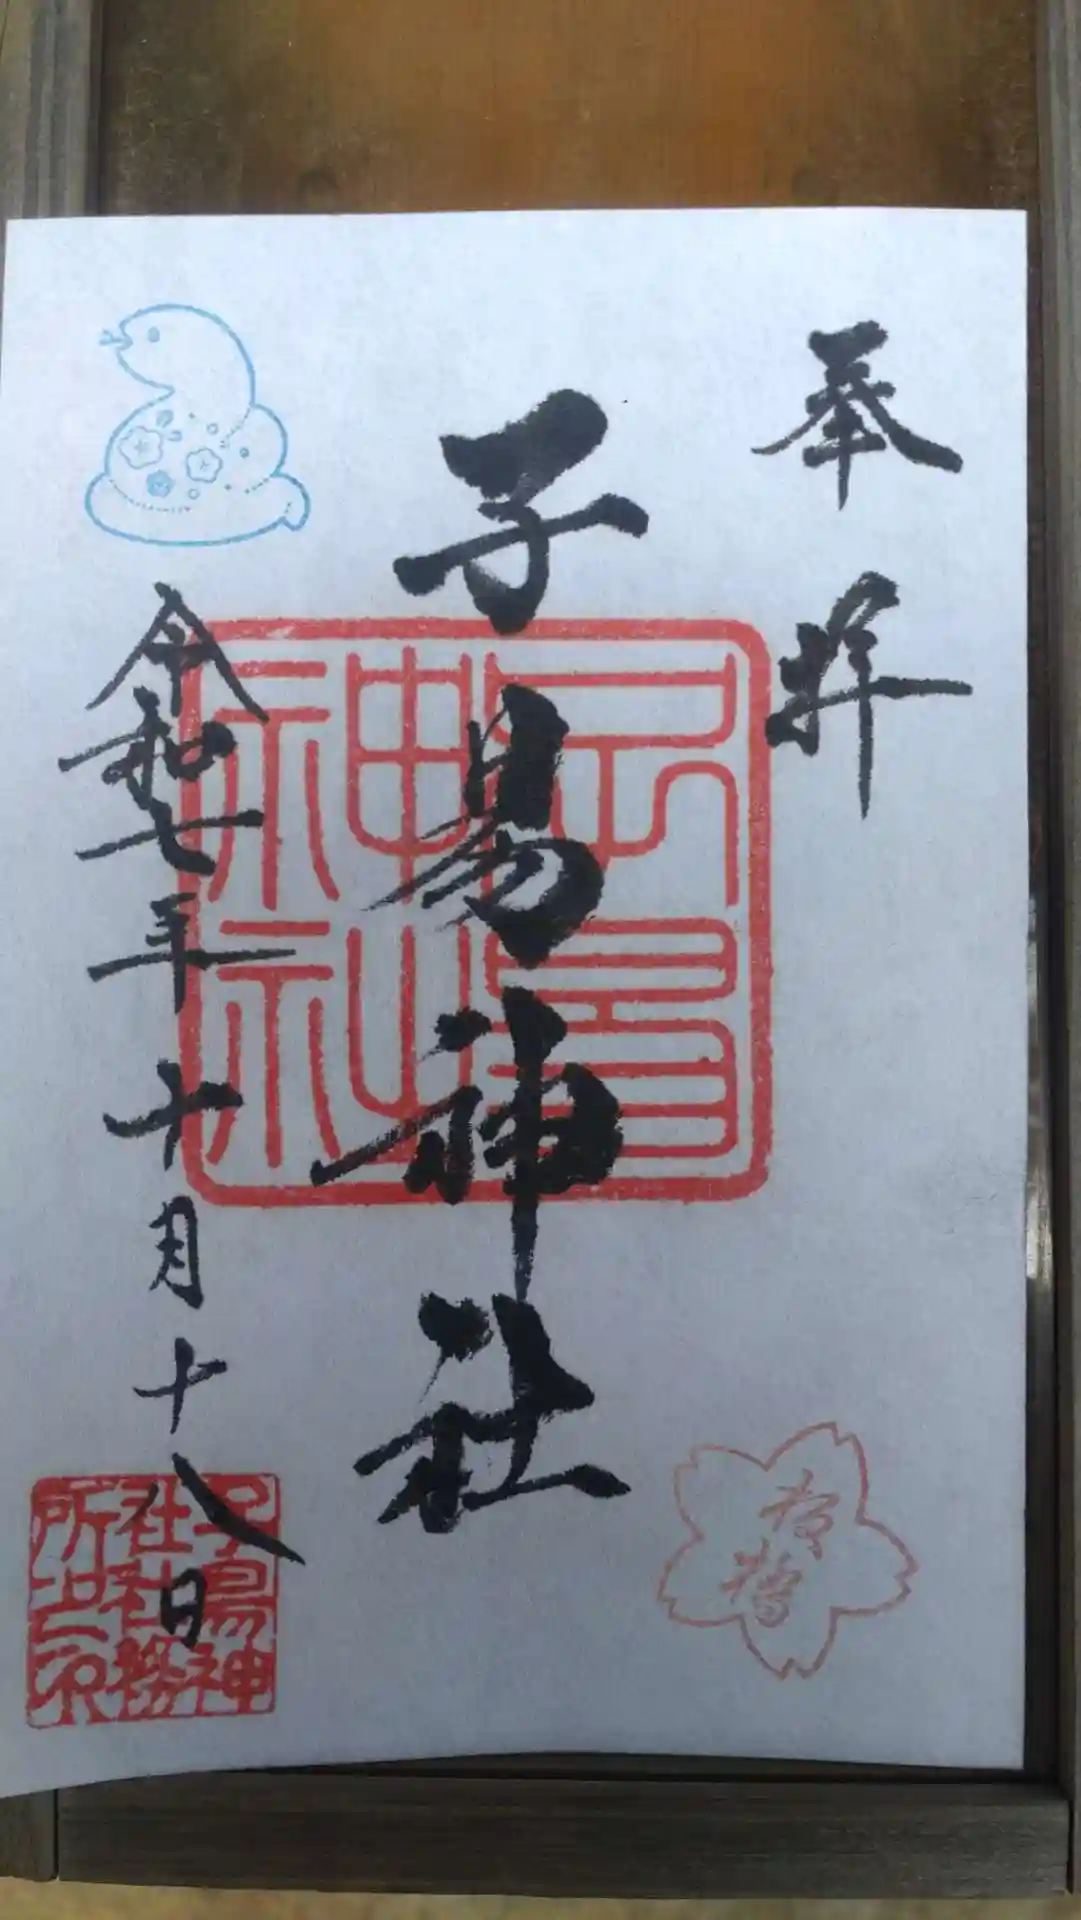 奉拝
子易神社
令和七年十月十八日
子易神社
子易神社社務所之印